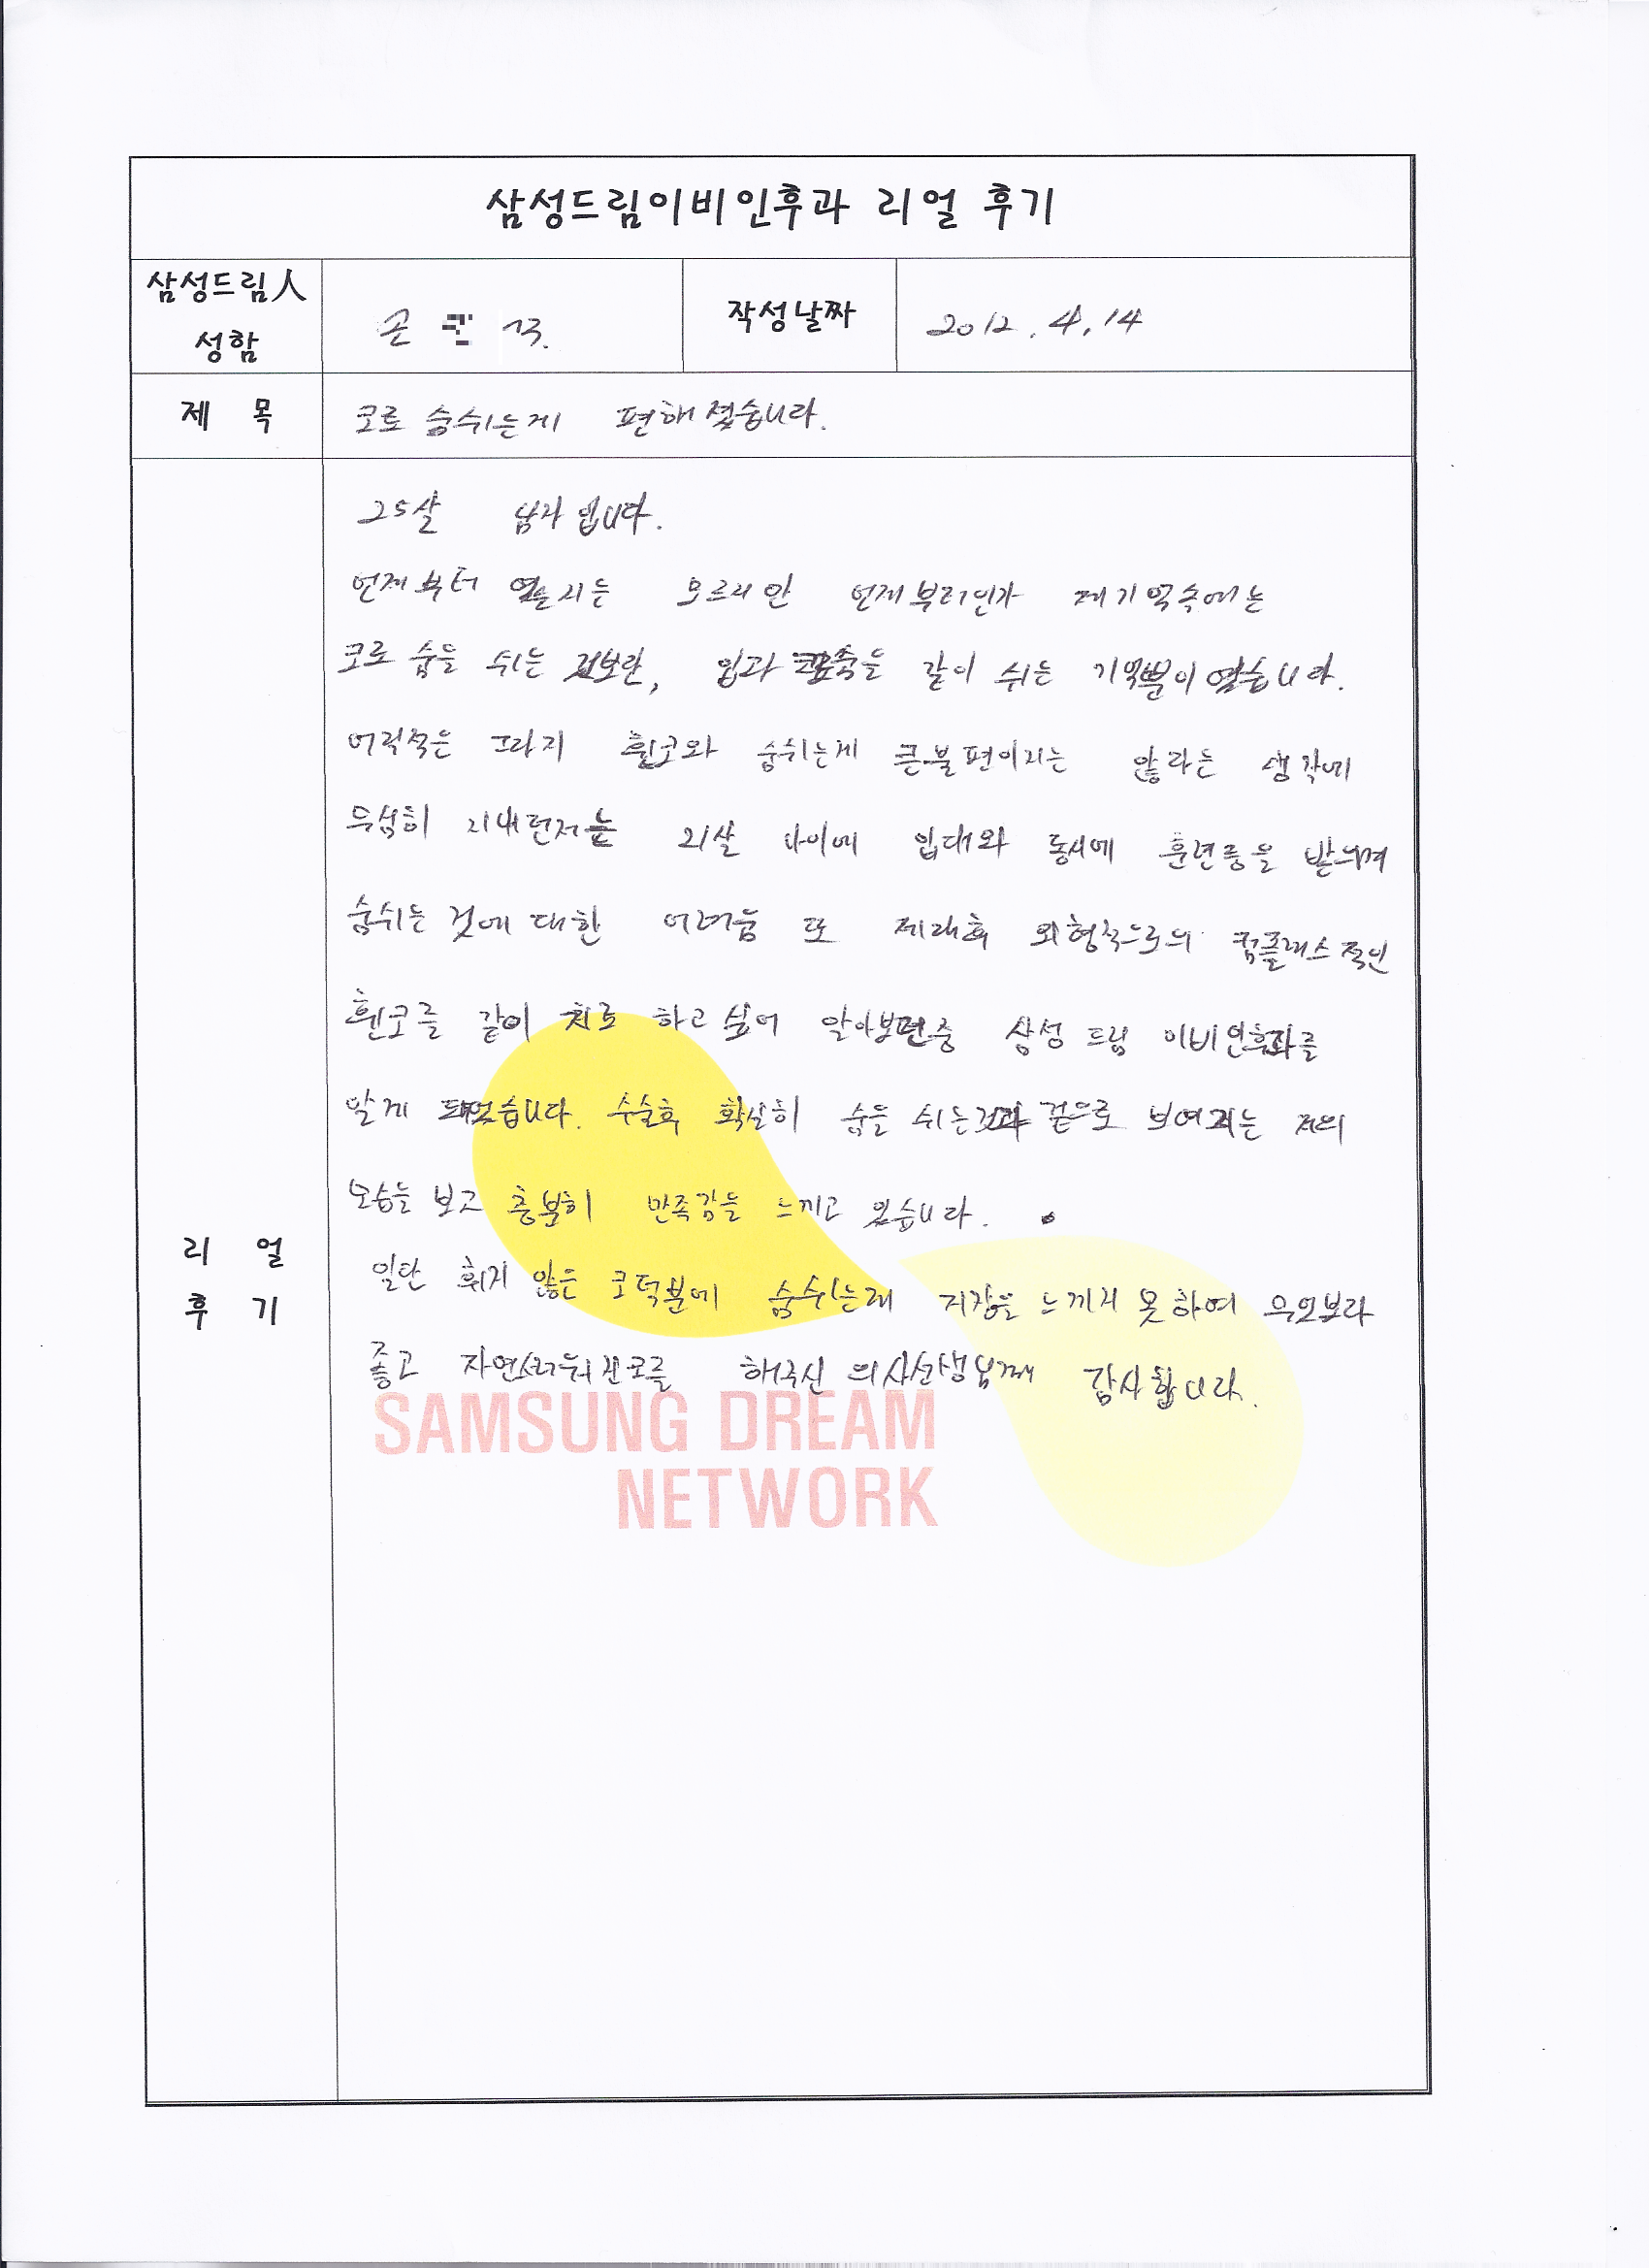 삼성드림이비인후과 리얼 후기
삼성드림人
성함
손
작성날짜
2012. 4. 14
제 목
코로 숨쉬는게 편해졌습니다.
25살 남자 입니다.
언제부터 였는지는 모르지만 언제부터인가 제 기억속에는
코로 숨을 쉬는 것보단, 입과 코로 숨을 같이 쉬는 기억뿐이였습니다.
어릴적은 그다지 휜코와 숨쉬는게 큰불편이지는 않다는 생각에
무심히 지내던저는 21살 나이에 입대와 동시에 훈련중을 받으며
숨쉬는 것에 대한 어려움 또 제대후 외형적으로의 컴플레스적인
휜코를 같이 치료 하고 싶어 알아보던중 삼성 드림 이비인후과를
알게 되었습니다. 수술후 확실히 숨을 쉬는것과 겉으로 보여지는 저의
모습을 보고 충분히 만족감을 느끼고 있습니다.
일단 휘지 않은 코덕분에 숨쉬는데 지장을 느끼지 못하여 무엇보다
좋고 자연스러워진코를 해주신 의사선생님께 감사합니다.
리 얼
후 기
SAMSUNG DREAM
NETWORK